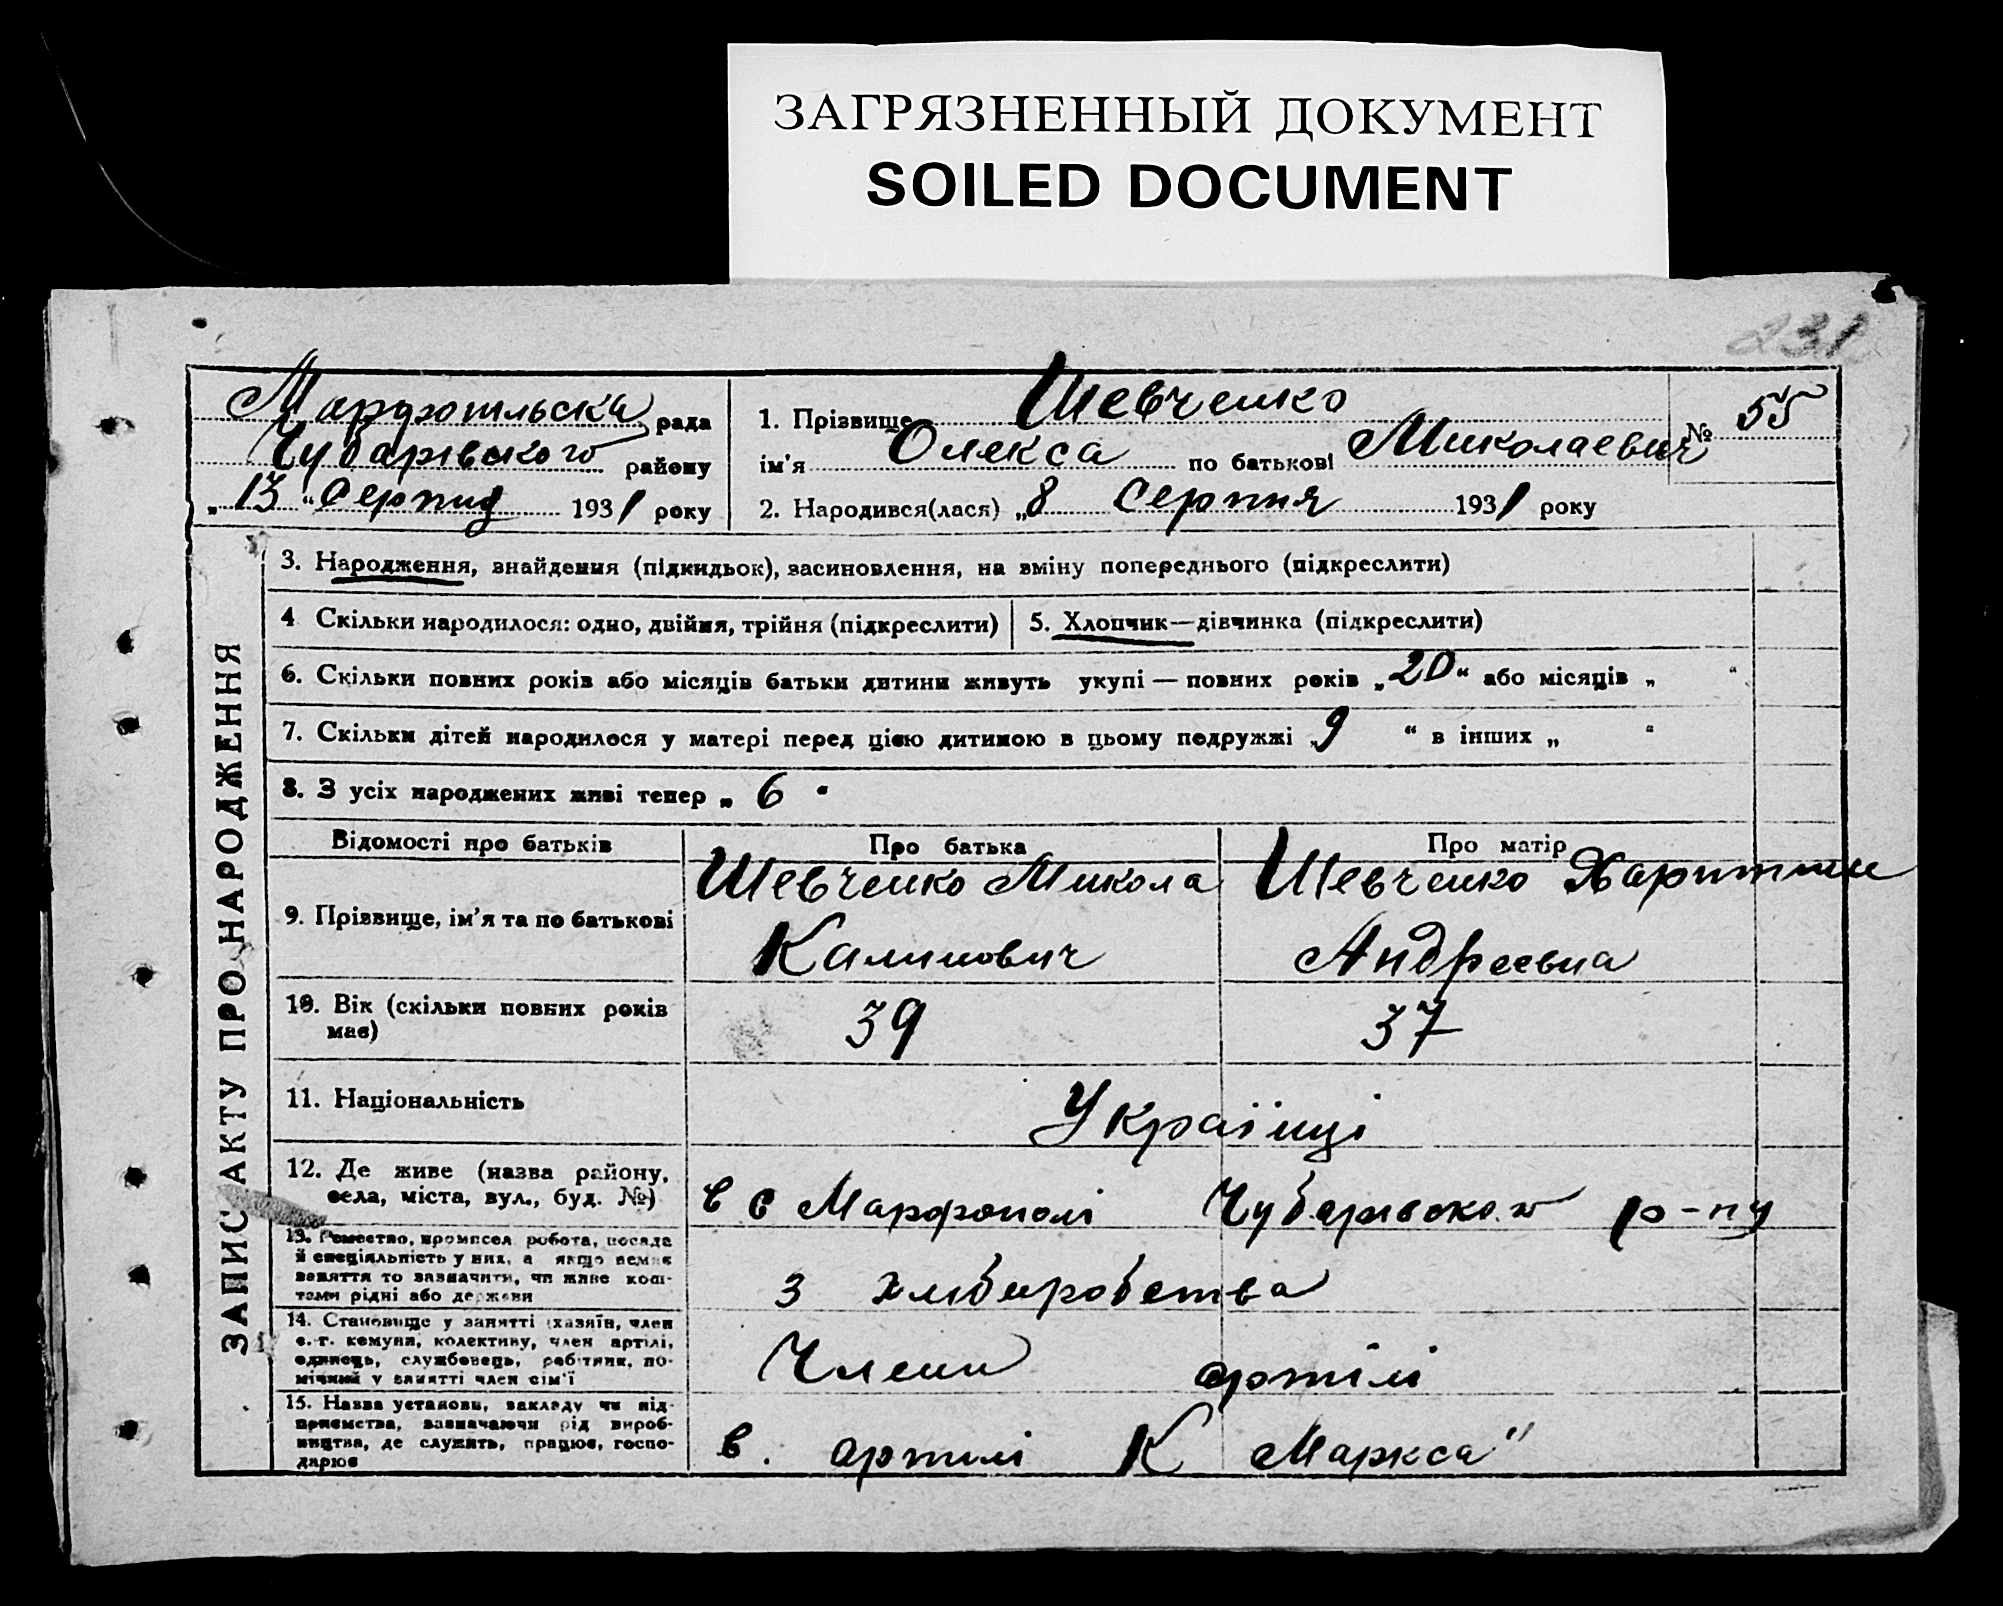 ЗАГРЯЗНЕННЫЙ ДОКУМЕНТ
SOILED DOCUMENT
231
Марфопільська рада
Чубарівского району
„13“ Серпня 1931 року
1. Прізвище Шевченко
ім'я Олекса по батькові Миколаевич
№ 55
2. Народився(лася) „8 Серпня 1931 року
ЗАПИС АКТУ ПРО НАРОДЖЕННЯ
3. Народження, знайдення (підкидьок), засиновлення, на вміну попереднього (підкреслити)
4 Скільки народилося: одно, двійня, трійня (підкреслити)
5. Хлопчик—дівчинка (підкреслити)
6. Скільки повних років або місяців батьки дитини живуть укупі — повних років „20“ або місяців „ “
7. Скільки дітей народилося у матері перед цією дитиною в цьому подружжі „9 “ в інших „ “
8. З усіх народжених живі тепер „ 6 “
Відомості про батьків Про батька Про матір
9. Прізвище, ім'я та по батькові
Шевченко Микола
Калинович
Шевченко Харитини
Андреевна
10. Вік (скільки повних років
має)
39 37
11. Національність Українці
12. Де живе (назва району,
села, міста, вул., буд. №)
в с Марфополі Чубарівского р-ну
13. Ремество, промисел, робота, посада
й спеціяльність у них, а якщо немає
заняття то зазначити, чи живе кош-
тами рідні або держави
з хліборобства
14. Становище у занятті (хазяїн, член
с.-г. комуни, колективу, член артілі,
одинець, службовець, робітник, по-
мічний у занятті член сім'ї
Члени артілі
15. Назва установи, закладу чи під-
приємства, зазначаючи рід вироб-
ництва, де служить, працює, госпо-
дарює
в. артілі К Маркса"